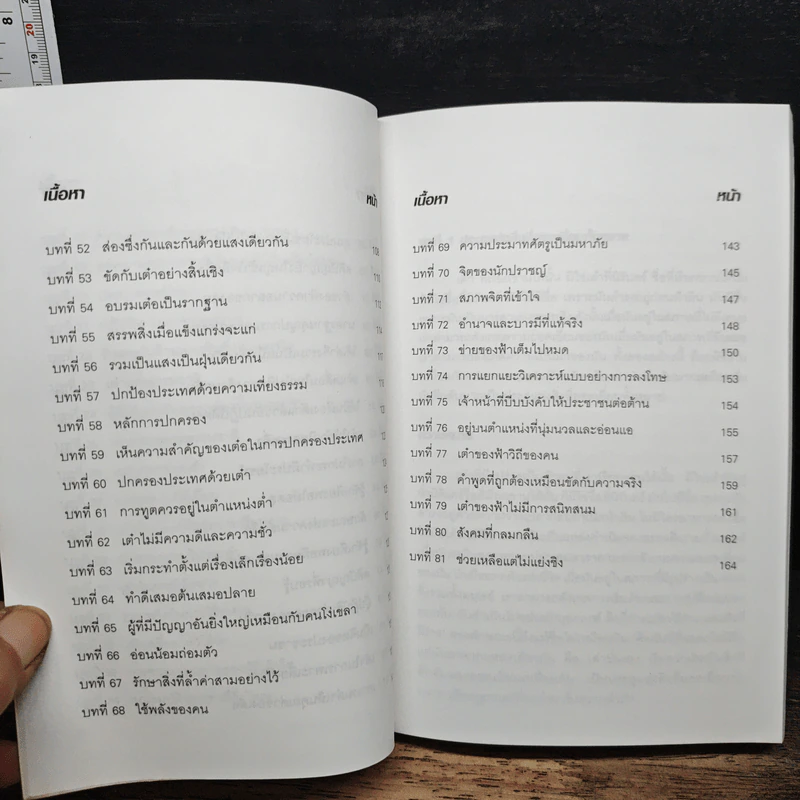 8
20
19
เนื้อหา หน้า
บทที่ 52 ส่องซึ่งกันและกันด้วยแสงเดียวกัน 108
บทที่ 53 ขัดกับเต๋าอย่างสิ้นเชิง 110
บทที่ 54 อบรมเต๋อเป็นรากฐาน
บทที่ 55 สรรพสิ่งเมื่อแข็งแกร่งจะแก่
บทที่ 56 รวมเป็นแสงเป็นฝุ่นเดียวกัน
บทที่ 57 ปกป้องประเทศด้วยความเที่ยงธรรม
บทที่ 58 หลักการปกครอง
บทที่ 59 เห็นความสำคัญของเต๋อในการปกครองประเทศ
บทที่ 60 ปกครองประเทศด้วยเต๋า
บทที่ 61 การทูตควรอยู่ในตำแหน่งต่ำ
บทที่ 62 เต๋าไม่มีความดีและความชั่ว
บทที่ 63 เริ่มกระทำตั้งแต่เรื่องเล็กเรื่องน้อย
บทที่ 64 ทำดีเสมอต้นเสมอปลาย
บทที่ 65 ผู้ที่มีปัญญาอันยิ่งใหญ่เหมือนกับคนโง่เขลา
บทที่ 66 อ่อนน้อมถ่อมตัว
บทที่ 67 รักษาสิ่งที่ล้ำค่าสามอย่างไว้
บทที่ 68 ใช้พลังของคน
เนื้อหา หน้า
บทที่ 69 ความประมาทศัตรูเป็นมหาภัย 143
บทที่ 70 จิตของนักปราชญ์ 145
บทที่ 71 สภาพจิตที่เข้าใจ 147
บทที่ 72 อำนาจและบารมีที่แท้จริง 148
บทที่ 73 ข่ายของฟ้าเต็มไปหมด 150
บทที่ 74 การแยกแยะวิเคราะห์แบบอย่างการลงโทษ 153
บทที่ 75 เจ้าหน้าที่บีบบังคับให้ประชาชนต่อต้าน 154
บทที่ 76 อยู่บนตำแหน่งที่นุ่มนวลและอ่อนแอ 155
บทที่ 77 เต๋าของฟ้าวิถีของคน 157
บทที่ 78 คำพูดที่ถูกต้องเหมือนขัดกับความจริง 159
บทที่ 79 เต๋าของฟ้าไม่มีการสนิทสนม 161
บทที่ 80 สังคมที่กลมกลืน 162
บทที่ 81 ช่วยเหลือแต่ไม่แย่งชิง 164